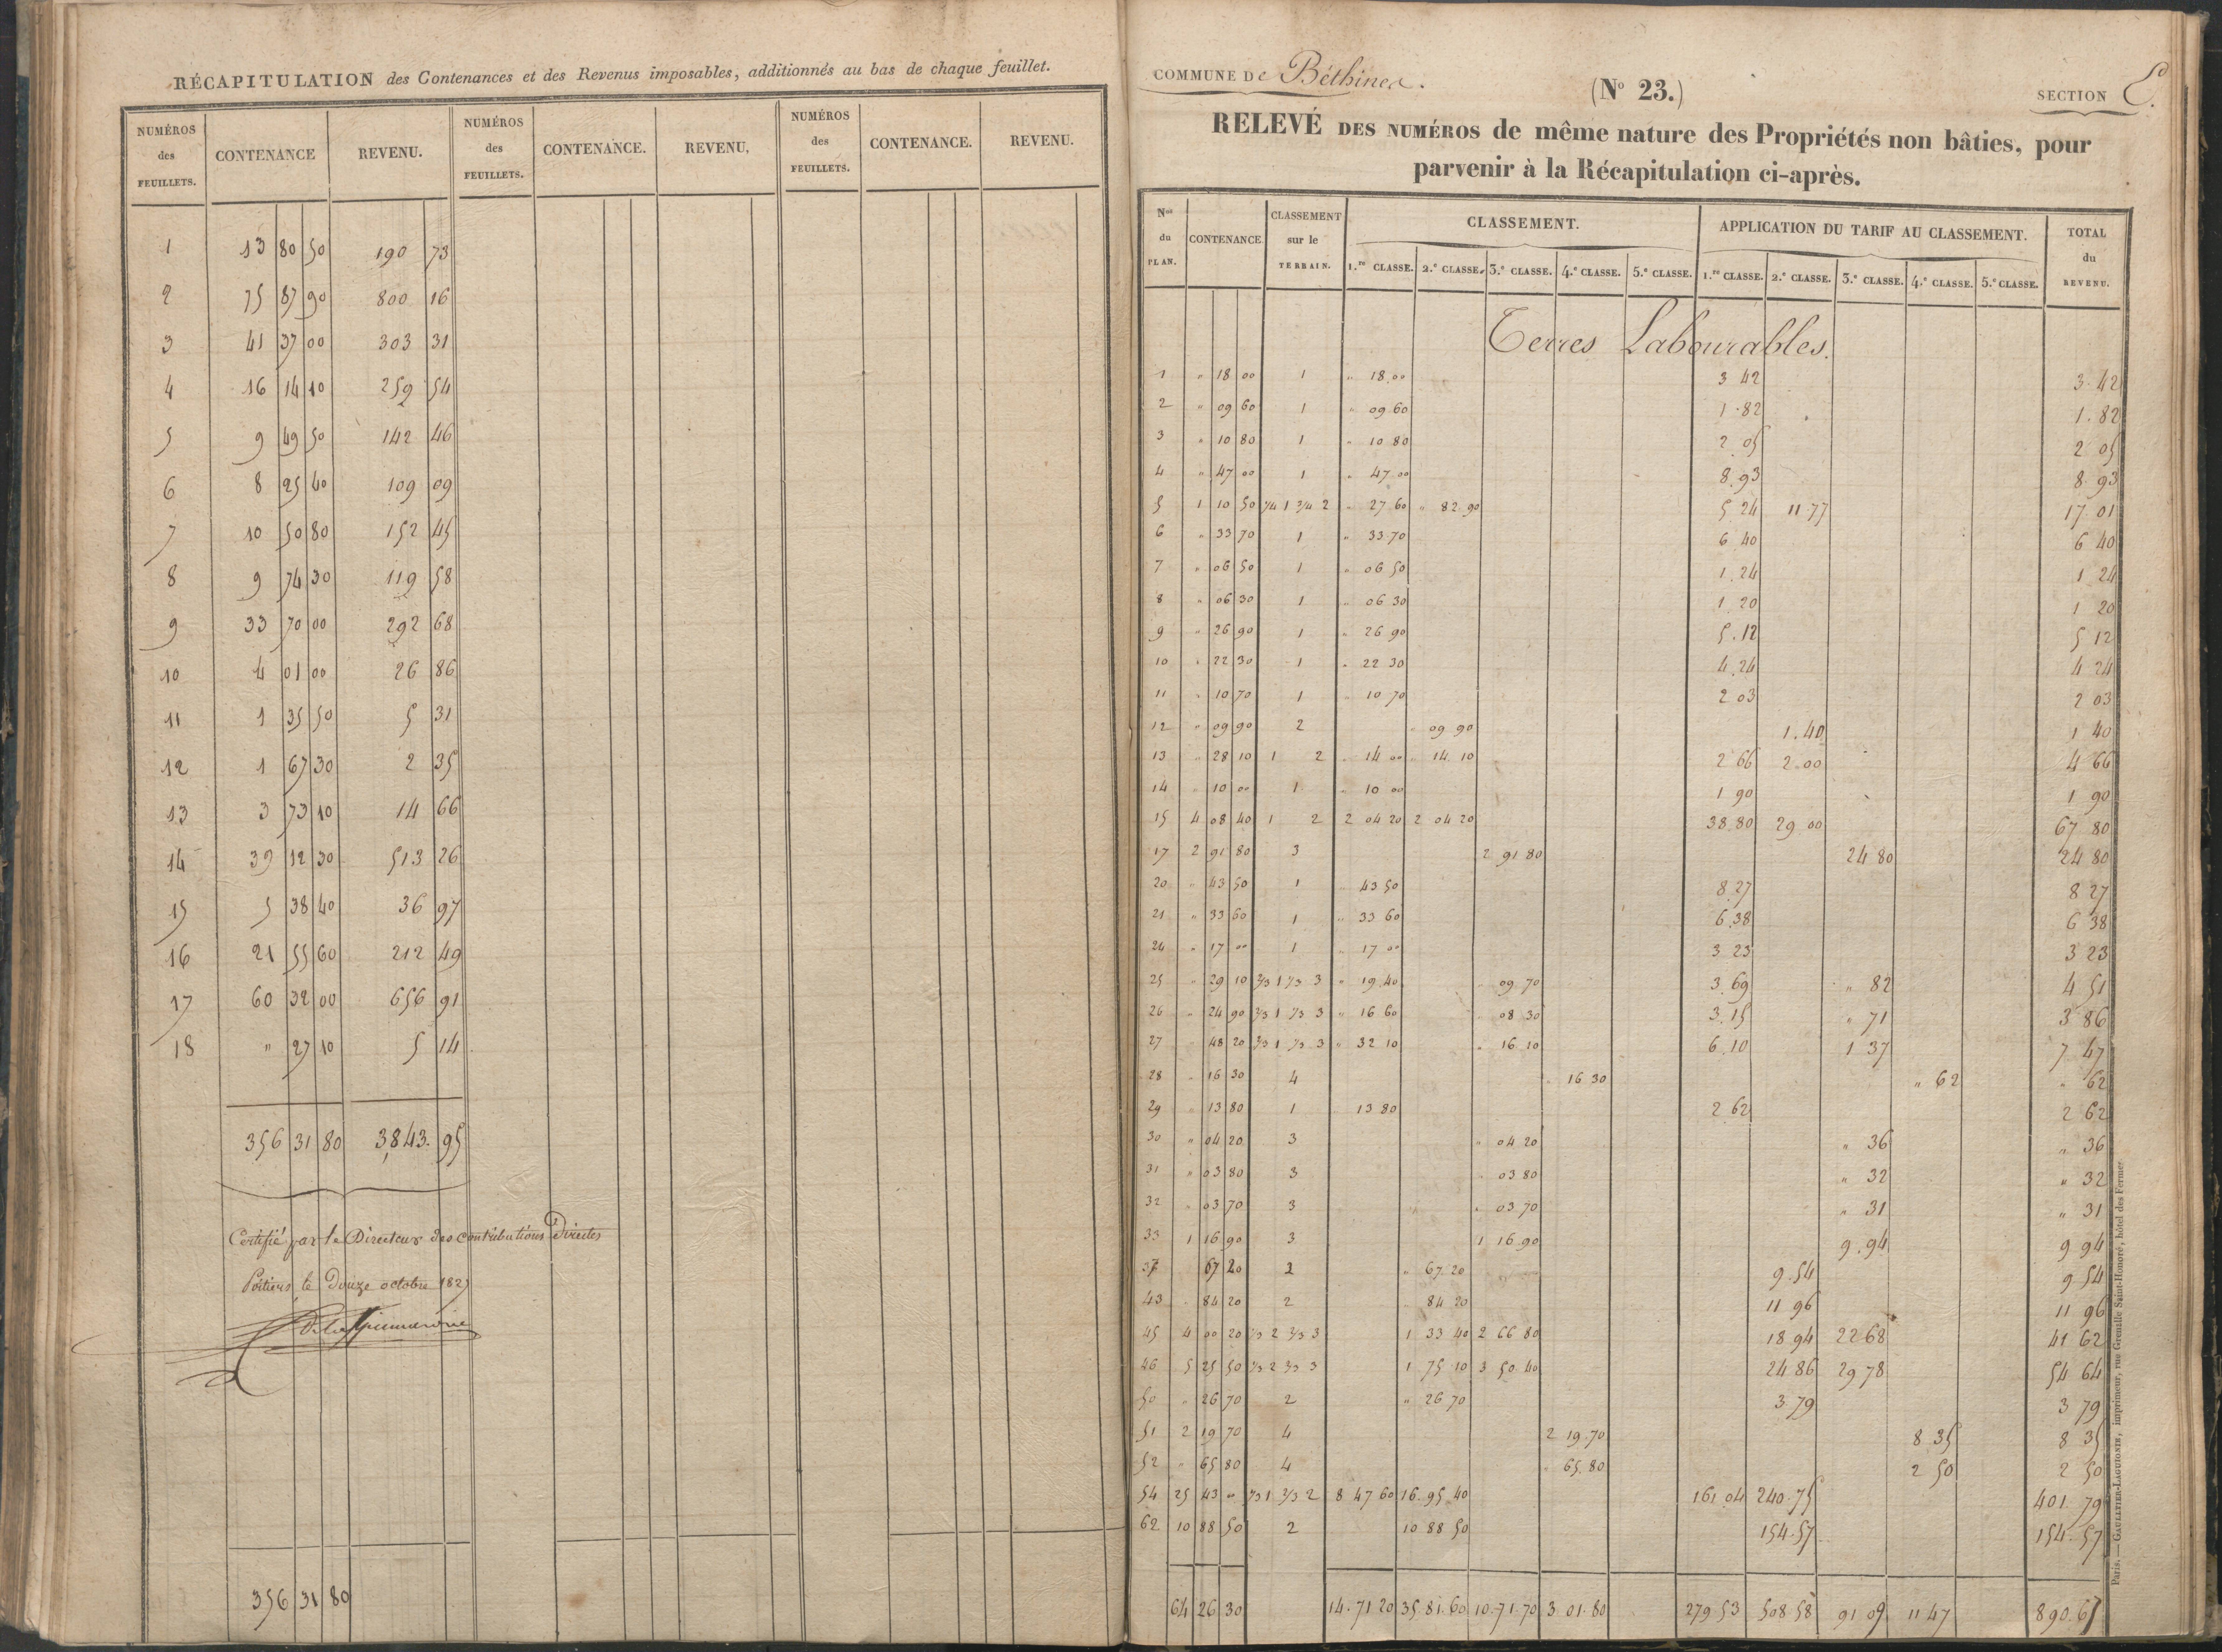 RÉCAPITULATION des Contenances et des Revenus imposables, additionnés au bas de chaque feuillet.
NUMÉROS des FEUILLETS. CONTENANCE REVENU. NUMÉROS des FEUILLETS. CONTENANCE. REVENU. NUMÉROS des FEUILLETS. CONTENANCE. REVENU.
1 13 80 50 190 73
2 75 87 90 800 16
3 41 37 00 303 31
4 16 14 10 259 54
5 9 49 50 142 46
6 8 25 40 109 09
7 10 50 80 152 45
8 9 74 30 119 58
9 33 70 00 292 68
10 4 01 00 26 86
11 1 35 50 5 31
12 1 67 30 2 35
13 3 73 10 14 66
14 39 12 30 513 26
15 5 38 40 36 97
16 21 55 60 212 49
17 60 32 00 656 91
18 " 27 10 5 14
356 31 80 3,843. 95
Certifié par le Directeur des contributions Directes
Poitiers, le Douze octobre 1827
356 31 80
COMMUNE De Béthines. (No 23.) SECTION E.
RELEVÉ DES NUMÉROS de même nature des Propriétés non bâties, pour
parvenir à la Récapitulation ci-après.
Nos du PLAN. CONTENANCE. CLASSEMENT sur le TERRAIN. CLASSEMENT. APPLICATION DU TARIF AU CLASSEMENT. TOTAL du REVENU.
1.re CLASSE. 2.e CLASSE. 3.e CLASSE. 4.e CLASSE. 5.e CLASSE. 1.re CLASSE. 2.e CLASSE. 3.e CLASSE. 4.e CLASSE. 5.e CLASSE.
Terres Labourables.
1 " 18 00 1 " 18.00 3 42 3.42
2 " 09 60 1 " 09.60 1.82 1.82
3 " 10 80 1 " 10 80 2.05 2 05
4 " 47 00 1 " 47.00 8.93 8.93
5 1 10 50 1/4 1 3/4 2 " 27.60 " 82.90 5 24 11.77 17.01
6 " 33 70 1 " 33.70 6.40 6 40
7 " 06 50 1 " 06 50 1.24 1 24
8 " 06 30 1 " 06 30 1.20 1 20
9 " 26 90 1 " 26.90 5.12 5 12
10 " 22 30 1 " 22 30 4.24 4 24
11 " 10 70 1 " 10 70 2 03 2 03
12 " 09 90 2 " 09 90 1.40 1 40
13 " 28 10 1 2 " 14 00 " 14.10 2 66 2.00 4 66
14 " 10 00 1 " 10 00 1 90 1 90
15 4 08 40 1 2 2 04 20 2 04 20 38.80 29 00 67 80
17 2 91 80 3 2 91 80 24 80 24 80
20 " 43 50 1 " 43 50 8.27 8 27
21 " 33 60 1 " 33 60 6.38 6 38
24 " 17 00 1 " 17 00 3 23 3 23
25 " 29 10 2/3 1 1/3 3 " 19.40 " 09.70 3.69 " 82 4 51
26 " 24 90 2/3 1 1/3 3 " 16 60 " 08 30 3.15 " 71 3 86
27 " 48 20 2/3 1 1/3 3 " 32 10 " 16.10 6.10 1 37 7 47
28 " 16 30 4 " 16 30 " 62 " 62
29 " 13 80 1 13 80 2 62 2 62
30 " 04 20 3 " 04 20 " 36 " 36
31 " 03 80 3 " 03 80 " 32 " 32
32 " 03 70 3 " 03.70 " 31 " 31
33 1 16 90 3 1 16.90 9.94 9 94
37 67 20 2 " 67.20 9.54 9 54
43 " 84 20 2 " 84 20 11 96 11 96
45 4 00 20 1/3 2 2/3 3 1 33 40 2 66 80 18 94 22 68 41 62
46 5 25 50 1/3 2 2/3 3 1 75 10 3 50.40 24 86 29 78 54 64
50 " 26 70 2 " 26 70 3.79 3 79
51 2 19 70 4 2 19.70 8 35 8 35
52 " 65 80 4 " 65.80 2 50 2 50
54 25 43 " 1/3 1 2/3 2 8 47 60 16.95.40 161.04 240.75 401.79
62 10 88 50 2 10 88 50 154.57 154.57
64 26 30 14.71 20 35.81.60 10.71.70 3 01.80 279 53 508 58 91 09 11 47 890.67
Paris. — GAULTIER-LAGUIONIE, imprimeur, rue Grenelle Saint-Honoré, hôtel des Fermes